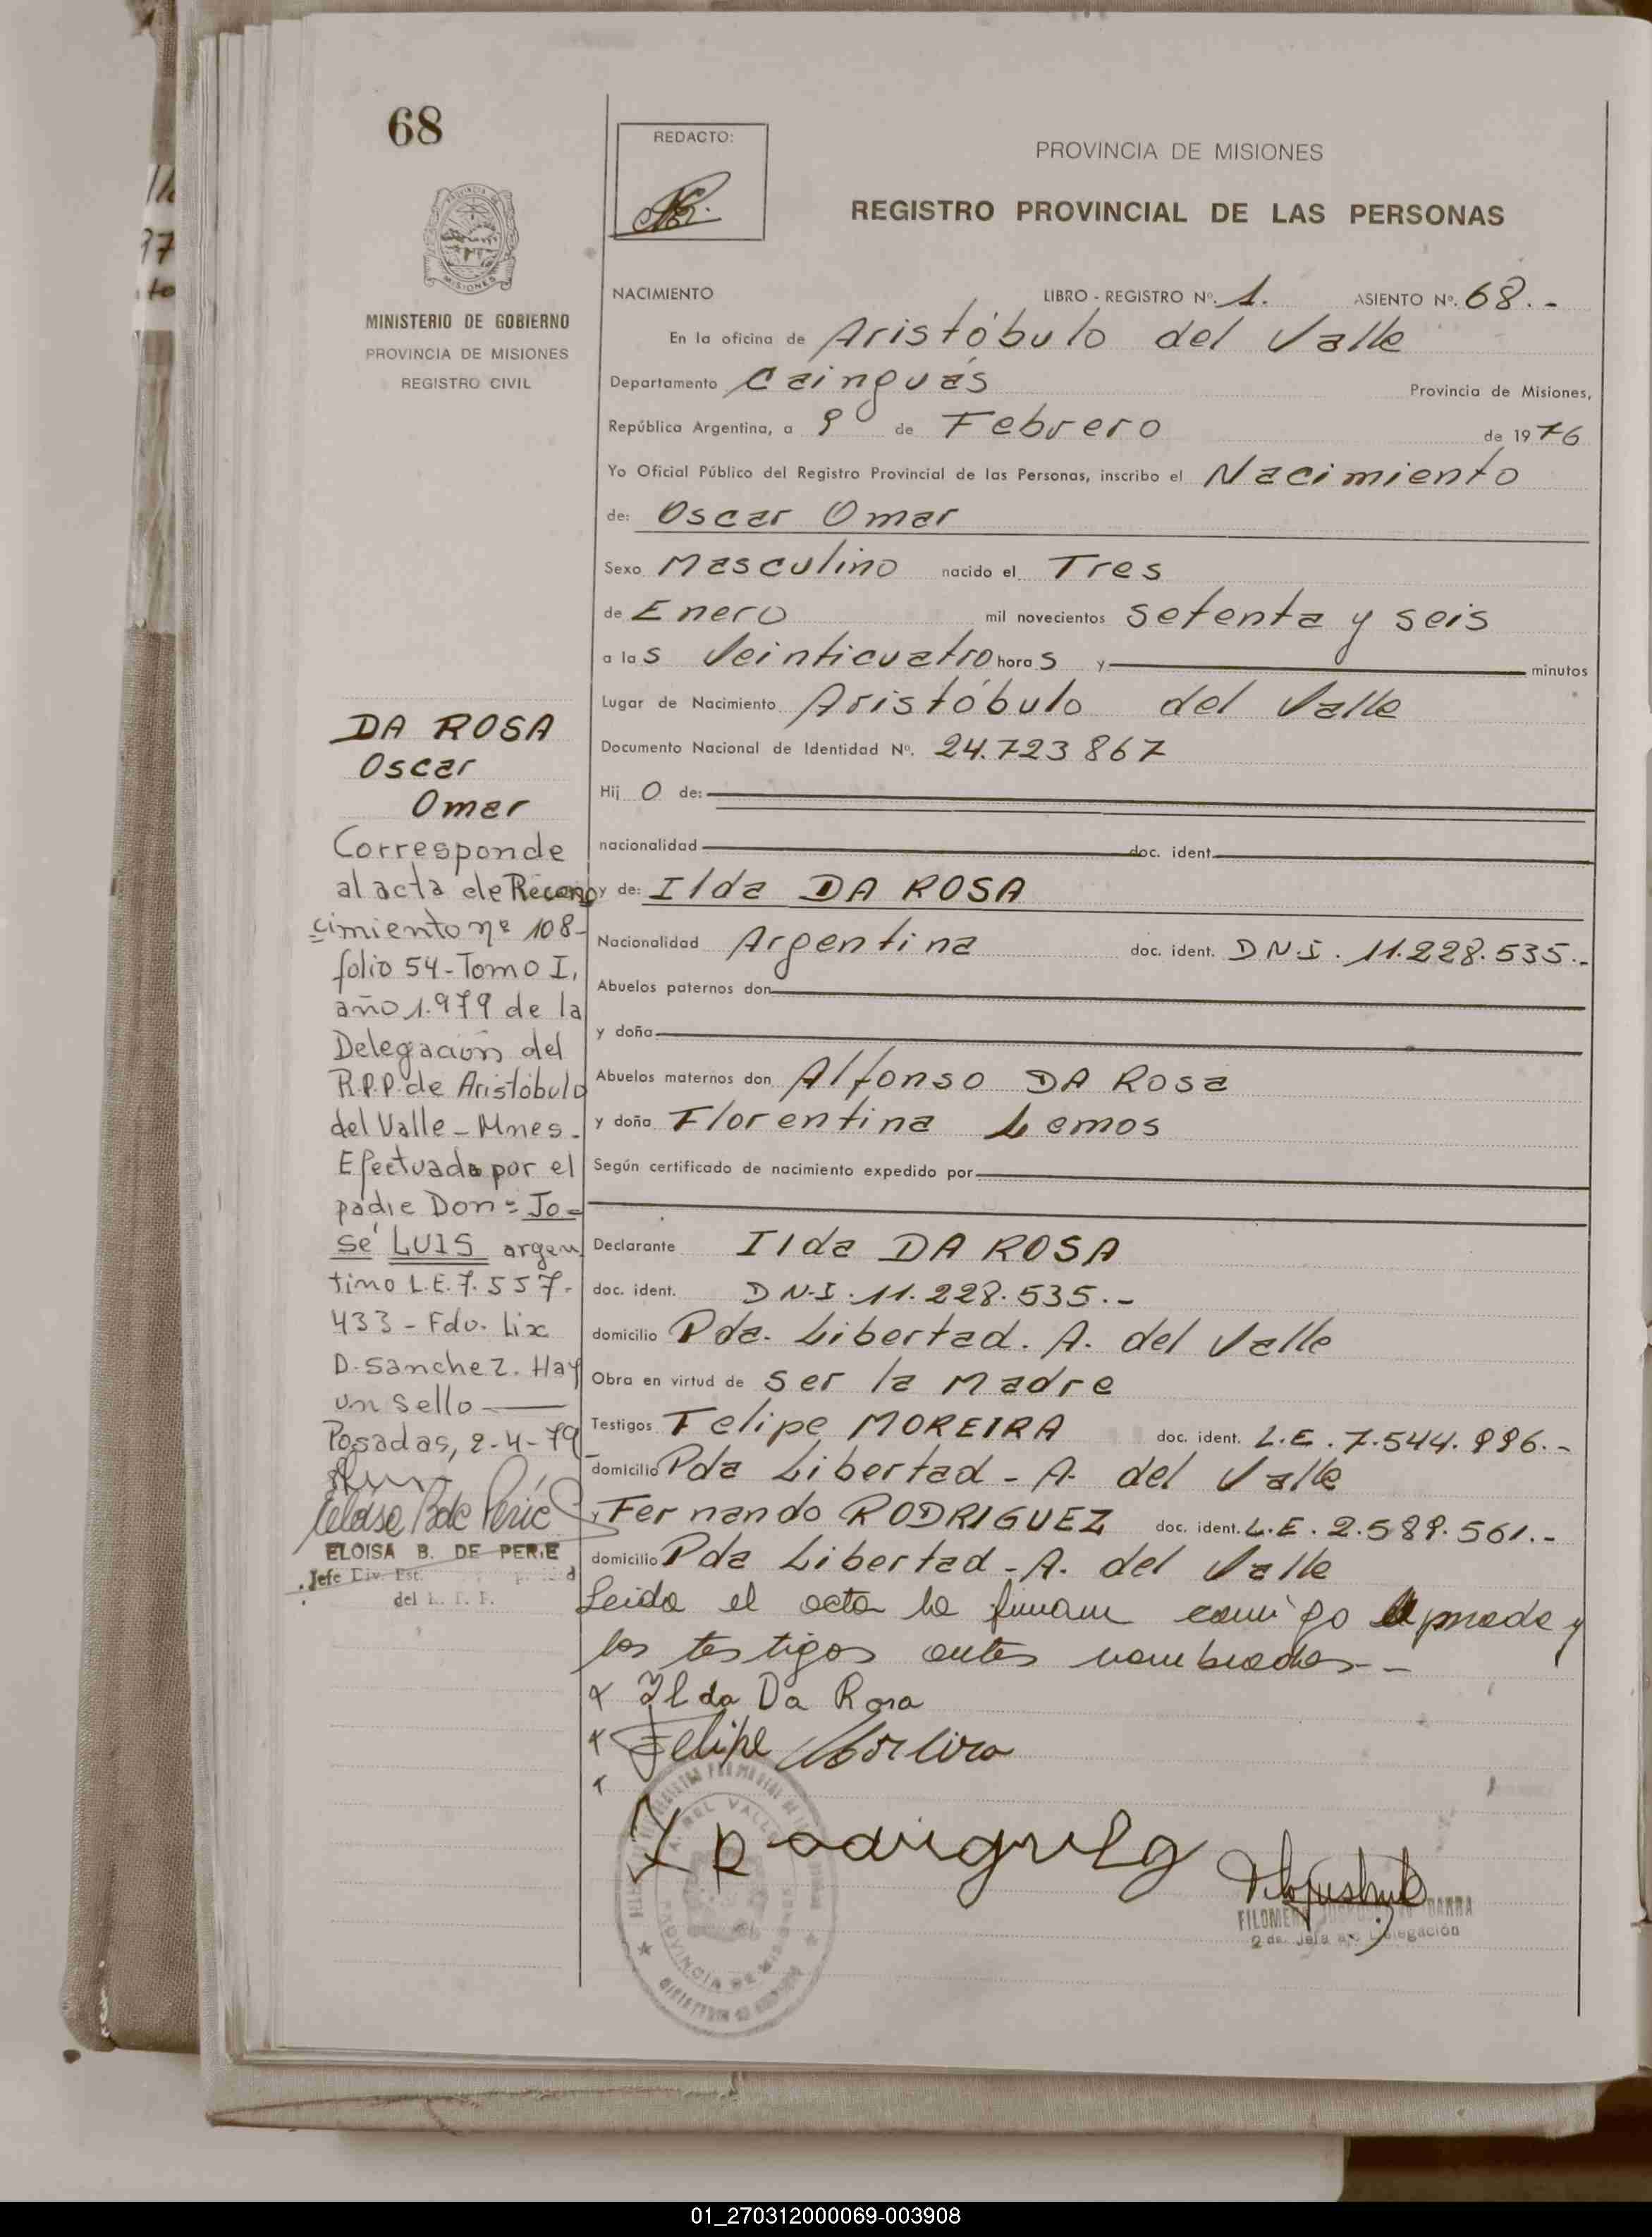 68
REDACTO:
PROVINCIA DE MISIONES
REGISTRO PROVINCIAL DE LAS PERSONAS
MISIONES
MINISTERIO DE GOBIERNO
PROVINCIA DE MISIONES
REGISTRO CIVIL
NACIMIENTO LIBRO - REGISTRO Nº. 1. ASIENTO Nº. 68.-
En la oficina de Aristóbulo del Valle
Departamento Cainguás Provincia de Misiones,
República Argentina, a 9 de Febrero de 1976
Yo Oficial Público del Registro Provincial de las Personas, inscribo el Nacimiento
de: Oscar Omar
Sexo Masculino nacido el Tres
de Enero mil novecientos setenta y seis
a las Veinticuatro horas y minutos
Lugar de Nacimiento Aristóbulo del Valle
Documento Nacional de Identidad Nº. 24.723867
Hijo de:
nacionalidad doc. ident.
y de: Ilda DA ROSA
Nacionalidad Argentina doc. ident. D.N.I. 11.228.535.-
Abuelos paternos don
y doña
Abuelos maternos don Alfonso DA Rosa
y doña Florentina Lemos
Según certificado de nacimiento expedido por
Declarante Ilda DA ROSA
doc. ident. D.N.I. 11.228.535.-
domicilio Pda. Libertad. A. del Valle
Obra en virtud de ser la Madre
Testigos Felipe MOREIRA doc. ident. L.E. 7.544.996.-
domicilio Pda Libertad - A. del Valle
Fernando RODRIGUEZ doc. ident. L.E. 2.589.561.-
domicilio Pda Libertad - A. del Valle
Leida el acta la firman conmigo la madre y
los testigos antes nombrados--
Ilda Da Rosa
Felipe Moreira
F Rodriguez
A. DEL VALLE
PROVINCIA DE MISIONES
FILOMENA IBARRA
2da. Jefa de Delegación
DA ROSA
Oscar
Omar
Corresponde
al acta de Recono
cimiento nº 108-
folio 54-Tomo I,
año 1.979 de la
Delegación del
R.P.P. de Aristóbulo
del Valle - Mnes.
Efectuada por el
padre Don = Jo=
sé LUIS argen
tino L.E. 7.557.
433 - Fdo. Lix
D. Sanchez. Hay
un sello
Posadas, 2-4-79
ELOISA B. DE PERIE
Jefe Div. Est.
del
01_270312000069-003908